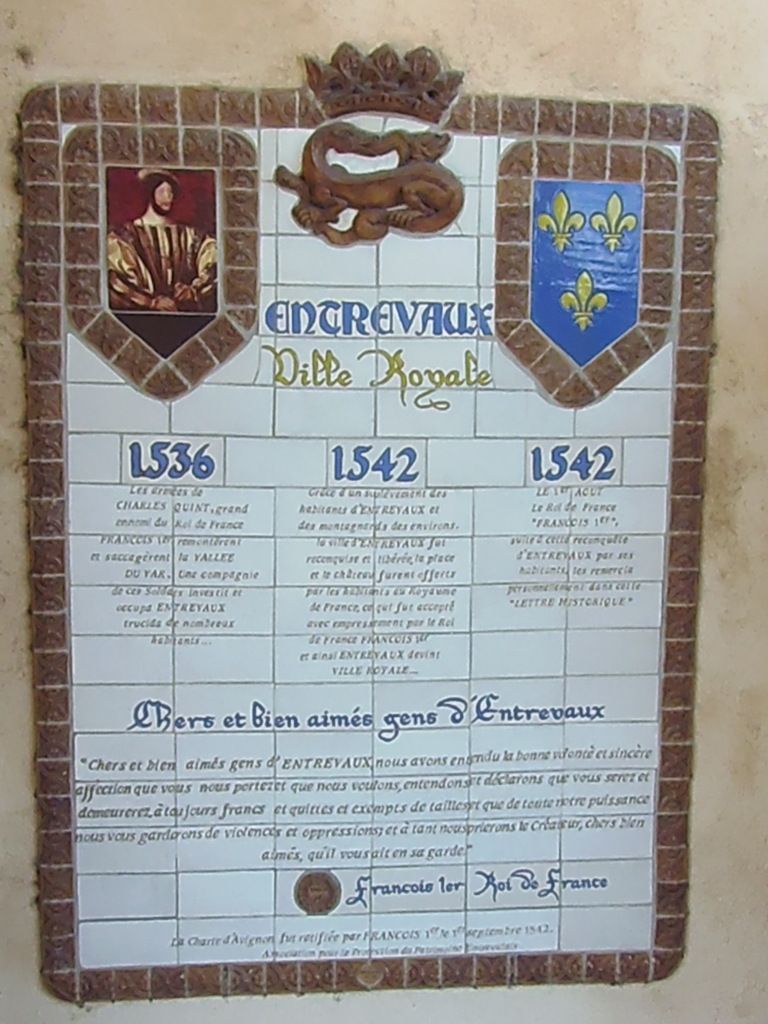 ENTREVAUX
Ville Royale
1536
Les armées de
CHARLES QUINT, grand
ennemi du Roi de France
FRANCOIS 1er remontèrent
et saccagèrent la VALLEE
DU VAR. Une compagnie
de ces Soldats investit et
occupa ENTREVAUX
trucida de nombreux
habitants...
1542
Grâce à un soulèvement des
habitants d'ENTREVAUX et
des montagnards des environs.
la ville d'ENTREVAUX fut
reconquise et libérée, la place
et le château furent offerts
par les habitants au Royaume
de France, ce qui fut accepté
avec empressement par le Roi
de France FRANCOIS 1er
et ainsi ENTREVAUX devint
VILLE ROYALE...
1542
LE 1er AOUT
Le Roi de France
"FRANCOIS 1er",
suite à cette reconquête
d'ENTREVAUX par ses
habitants, les remercia
personnellement dans cette
"LETTRE HISTORIQUE"
Chers et bien aimés gens d'Entrevaux
"Chers et bien aimés gens d'ENTREVAUX, nous avons entendu la bonne volonté et sincère
affection que vous nous portez et que nous voulons, entendons et déclarons que vous serez et
demeurerez, à toujours francs et quittes et exempts de tailles et que de toute notre puissance
nous vous garderons de violences et oppressions, et à tant nous prierons le Créateur, chers bien
aimés, qu'il vous ait en sa garde."
Francois 1er Roi de France
La Charte d'Avignon fut ratifiée par FRANCOIS 1er le 1er septembre 1542.
Association pour la Protection du Patrimoine Entrevalais